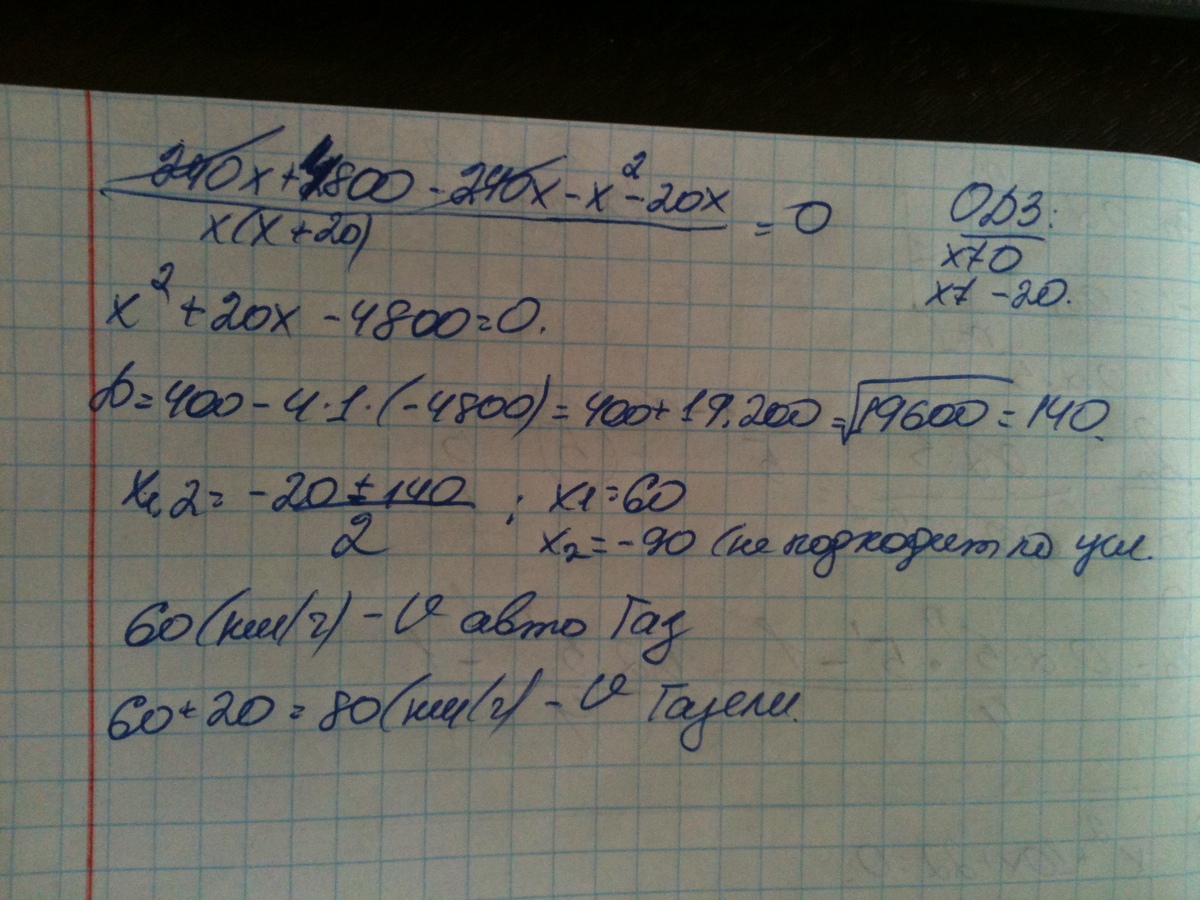 240x + 4800 - 240x - x² - 20x / x(x+20) = 0
ОДЗ:
x≠0
x≠ -20.
x² + 20x - 4800 = 0.
D = 400 - 4·1·(-4800) = 400 + 19.200 = √19600 = 140.
x1,2 = -20 ± 140 / 2 ; x1 = 60
x2 = -90 (не подходит по усл.
60 (км/ч) - V авто Газ
60 + 20 = 80 (км/ч) - V Газели.